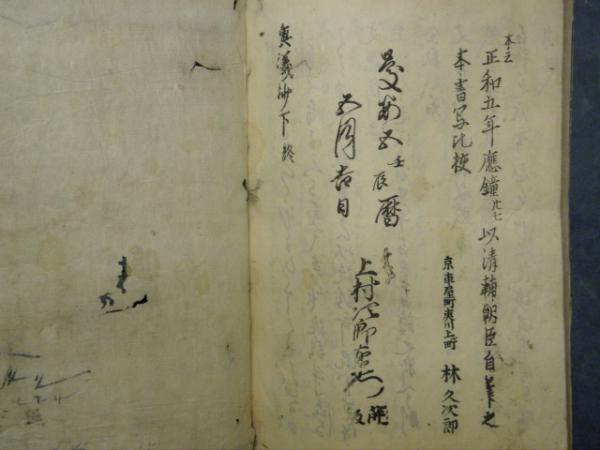 本云
正和五年應鐘廿七以清輔朝臣自筆之
本書写比校
京車屋町夷川上町 林久次郎
慶安五壬辰暦
五月吉日
上村次郎右衛門 開板
奥儀抄下終